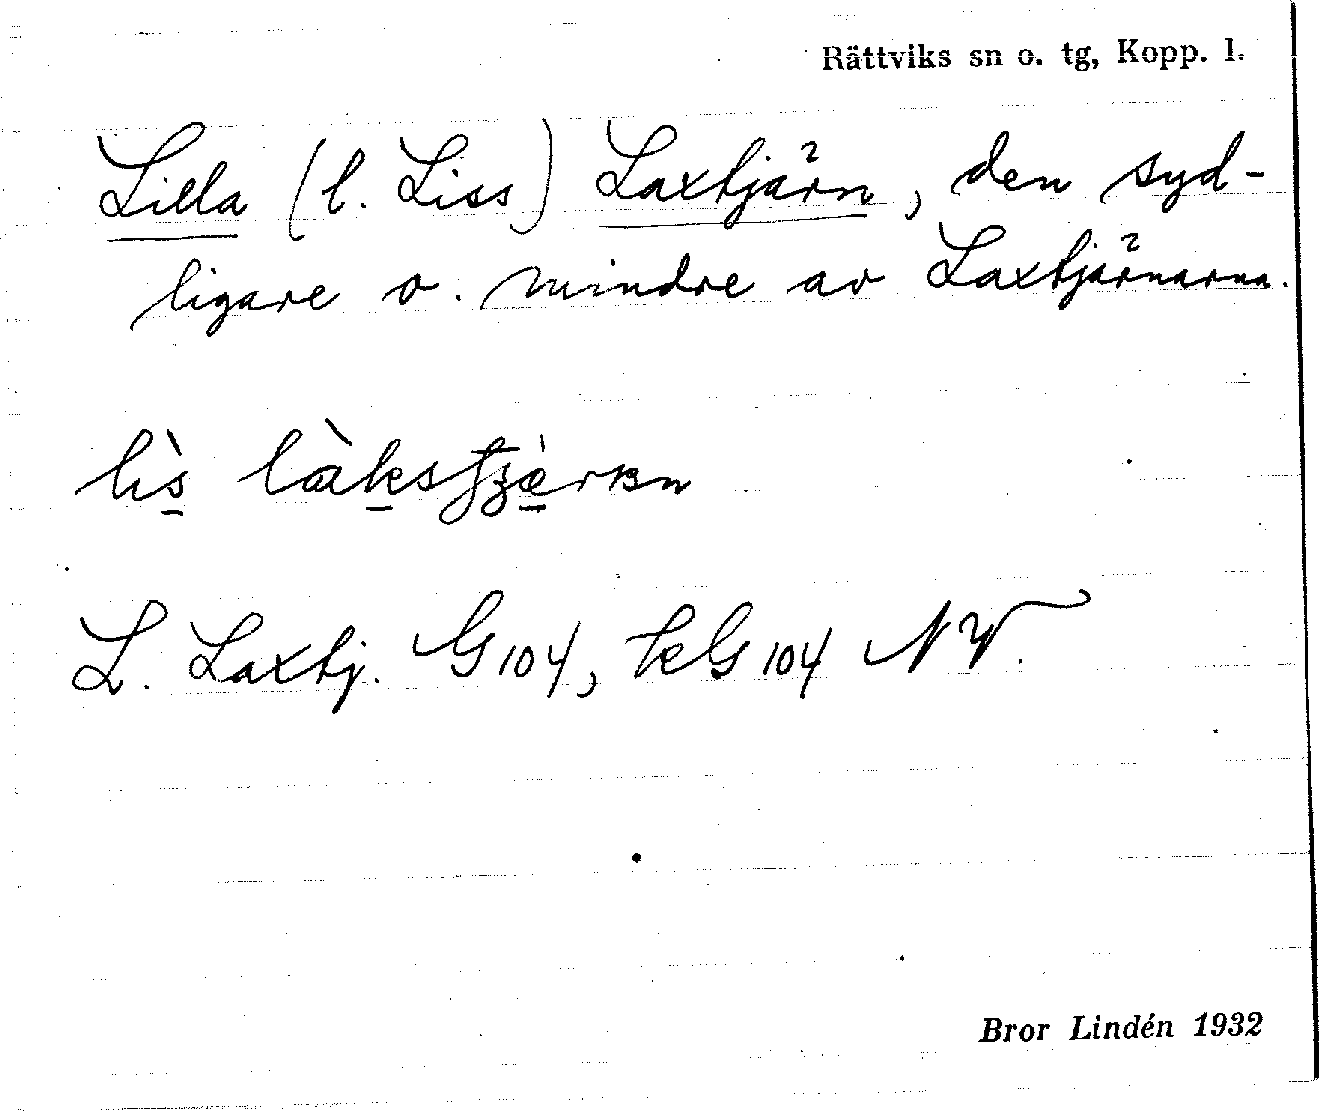 Rättviks sn o. tg, Kopp. l.
Lilla (l. Liss) Laxtjärn, den syd-
ligare o. mindre av Laxtjärnarna.
lìs
L. Laxtj. G104, kG104 NV.
Bror Lindén 1932